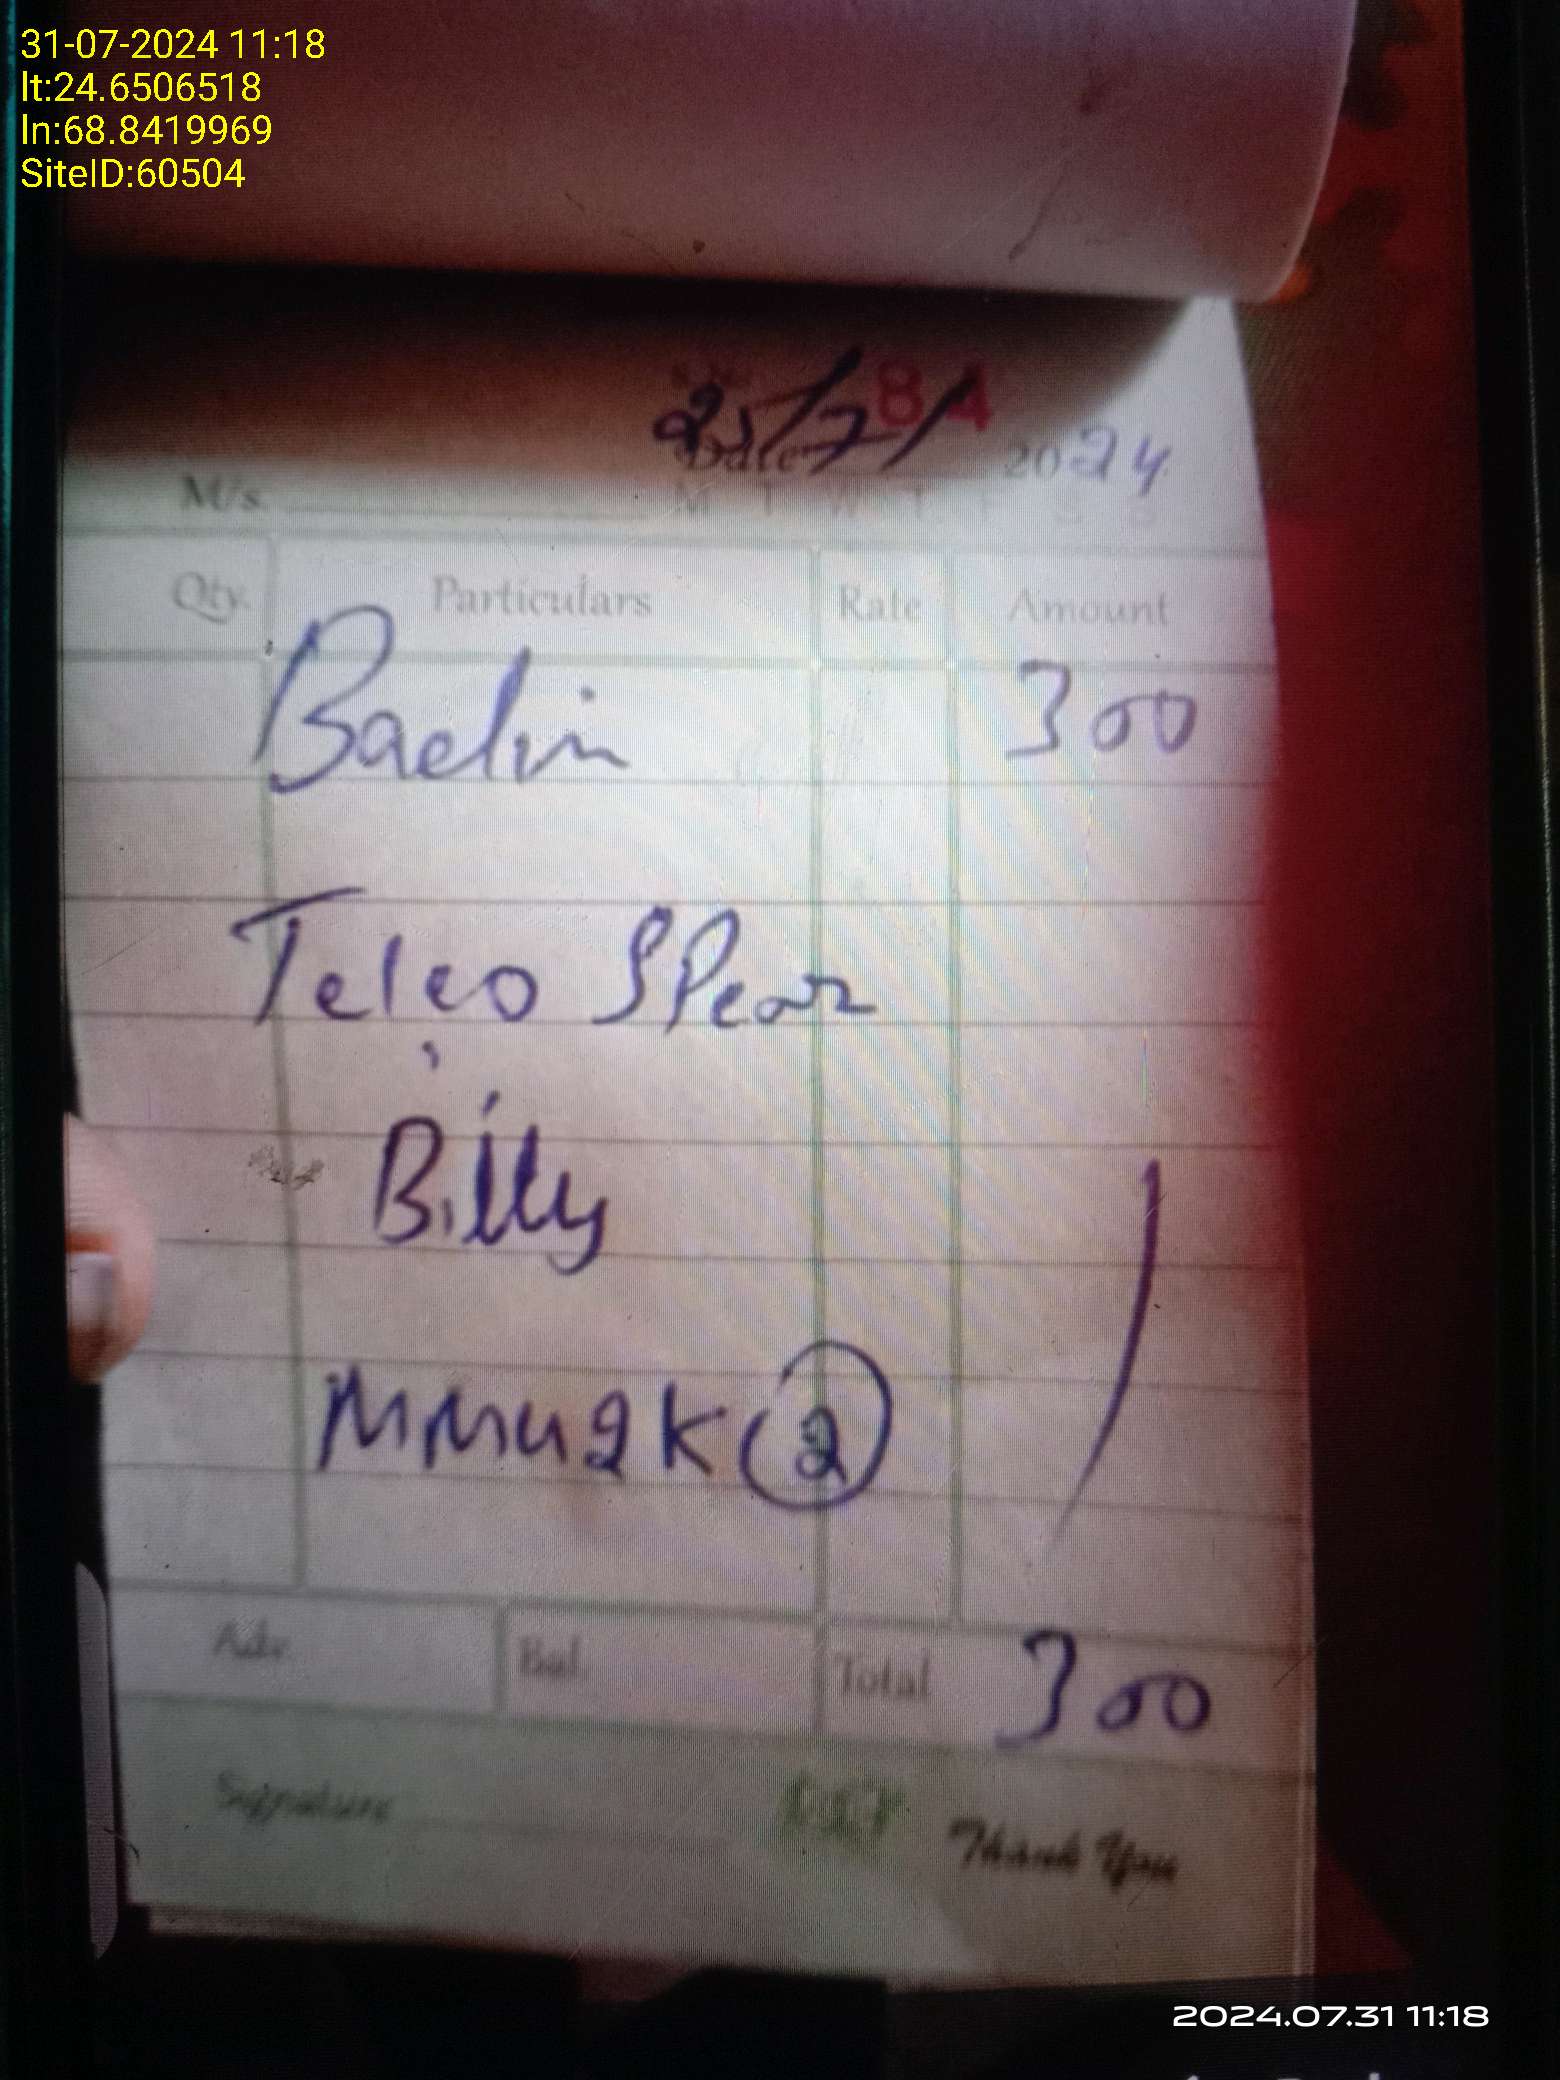 31-07-2024 11:18
lt:24.6506518
ln:68.8419969
SiteID:60504
84
Date 25/7/ 2024
M/s.
M T W T F S S
Qty. Particulars Rate Amount
Badin 300
Telco Spear
Billy
MMU2K 2
Adv. Bal. Total 300
Signature
Thank You
2024.07.31 11:18